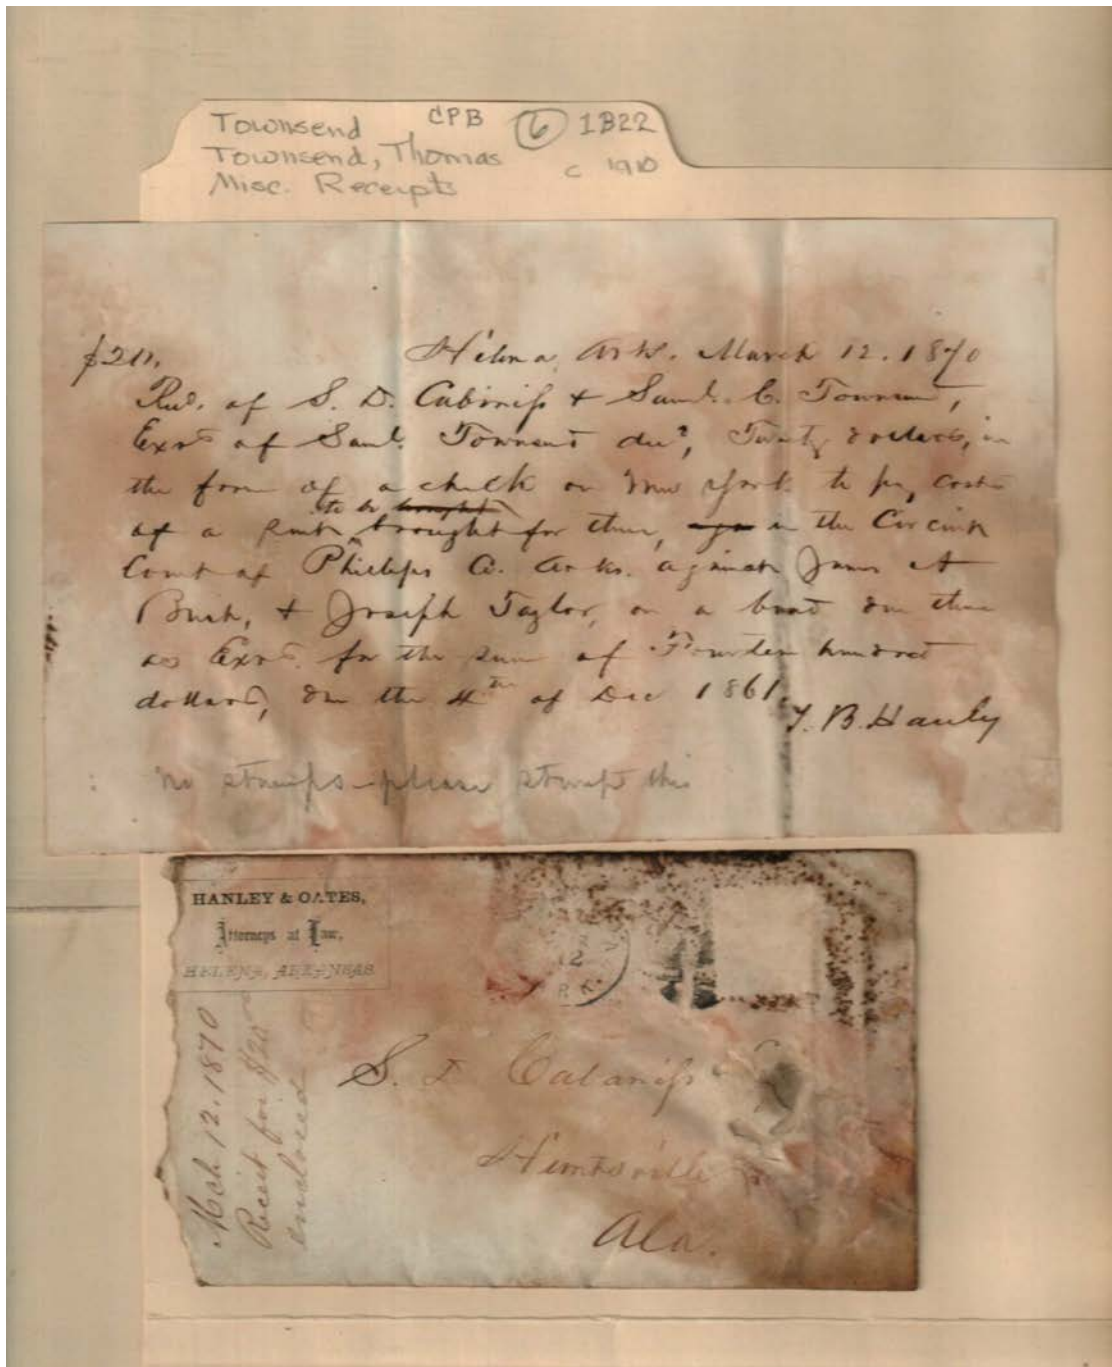 Townsend CPB 6 1B22
Townsend, Thomas c 1910
Misc. Receipts
$20. Helena, Arks. March 12. 1870
Recd. of S. D. Cabiniss & Saml. C. Townsend,
Exrs of Saml. Townsend decd, Twenty dollars, in
the form of a check on New York to pay costs
to be bought
of a suit brought for them, in the Circuit
Court of Phillips Co. Arks. against James A
Bush, & Joseph Taylor, on a bond due them
as Exrs. for the sum of Fourteen hundred
dollars, due the 4th of Dec 1861.
T. B. Hanly
no stamps - please stamp this
HANLEY & OATES,
Attorneys at Law,
HELENA, ARKANSAS.
12
S. D Cabaniss
Huntsville
Ala.
Mch 12. 1870
Receit for $20
enclosed